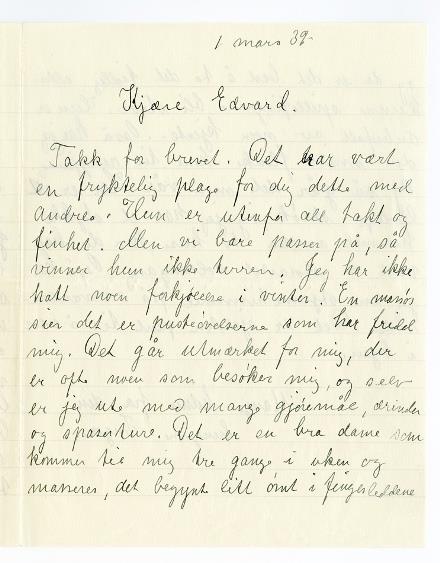 1 mars 39-
Kjære Edvard.
Takk for brevet. Det har vært
en fryktelig plage for dig dette med
Andrea. Hun er utenfor all takt og
finhet. Men vi bare passer på, så
vinner hun ikke terren. Jeg har ikke
hatt noen forkjølelse i vinter. En massøs
sier det er pusteøvelserne som har fridd
mig. Det går utmærket for mig, der
er ofte noen som besøker mig, og selv
er jeg ute med mange gjøremål, ærinder
og spaserture. Det er en bra dame som
kommer til mig tre gange i uken og
masseres, det begynte litt ømt i fingerleddene